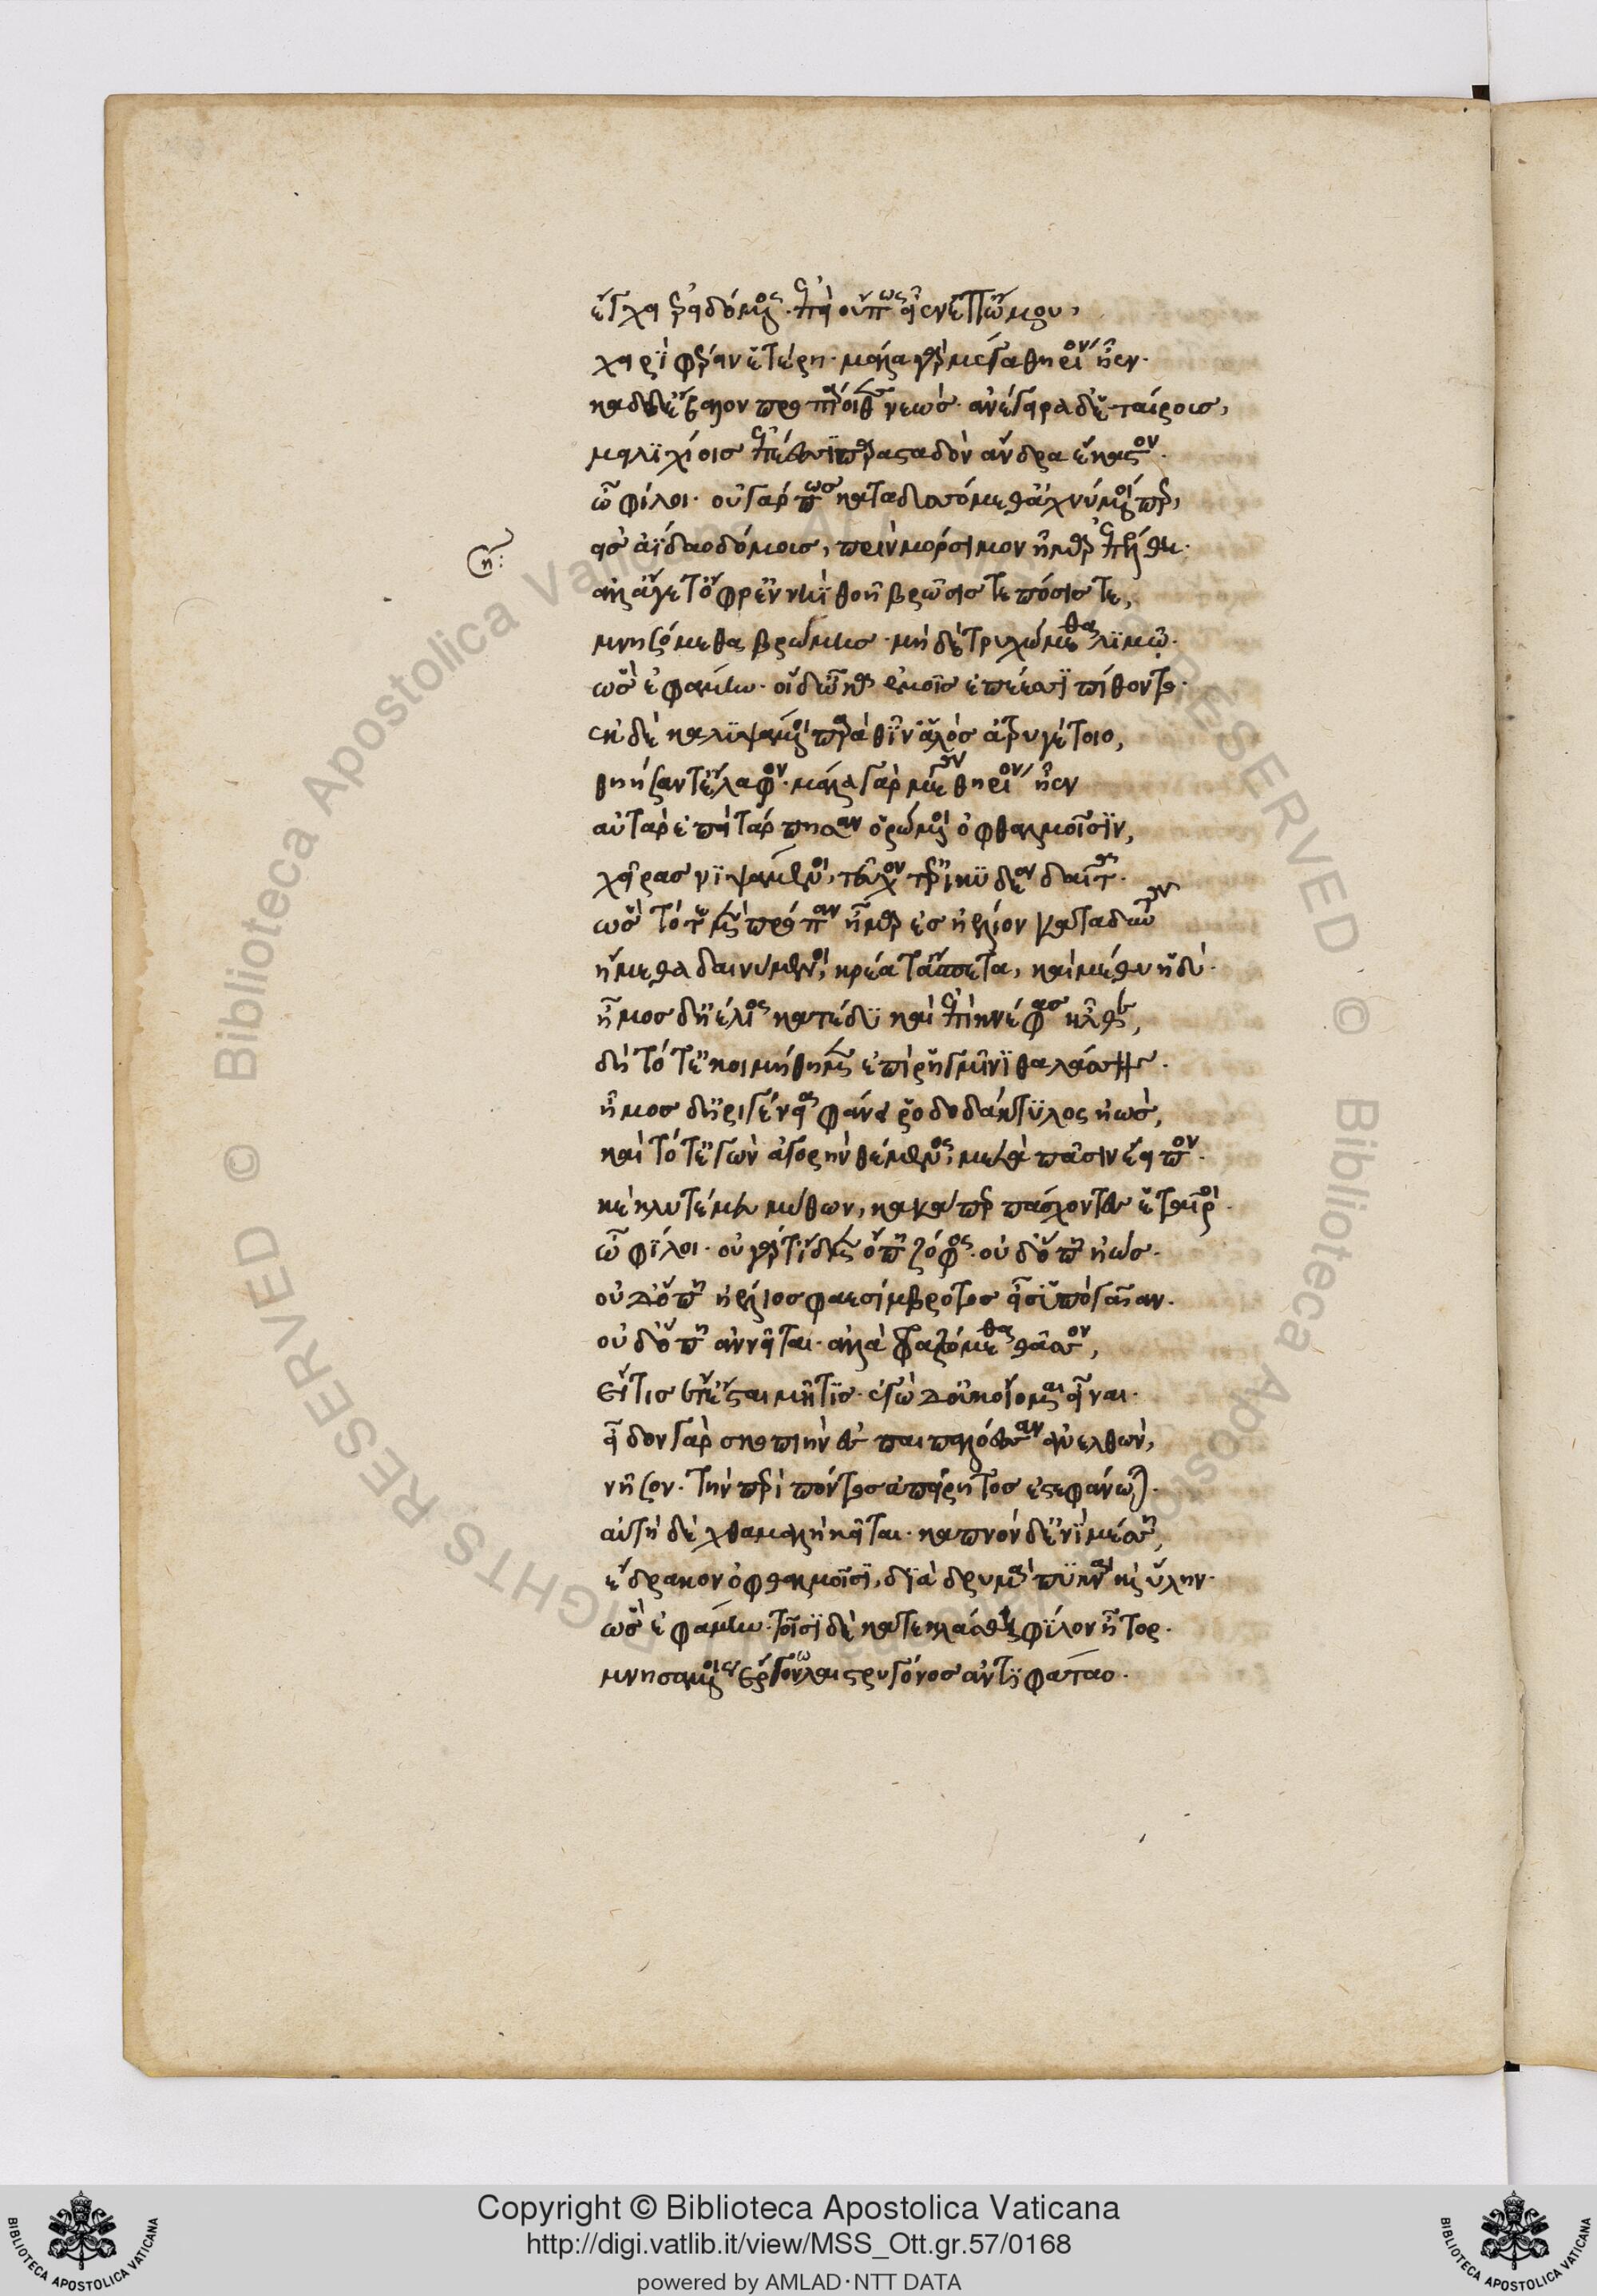 ἔγχει ἐρειδόμενος· ἐπεὶ οὔπως εἶεν ἐπ' ὤμου,
χειρὶ φέρειν ἑτέρη· μάλα γὰρ μέγα θηρίον ἦεν·
καδδ' ἔβαλον προπάροιθε νεώς· ἀνέγειρα δ' ἑταίροις,
μειλιχίοις ἐπέεσσι παρασταδὸν ἄνδρα ἕκαστον·
ὦ φίλοι· οὐ γάρ πως καταδυσόμεθ' ἀχνύμενοί περ,
εἰς ἀΐδαο δόμοις, πρὶν μόρσιμον ἦμαρ ἐπέλθη·
ἀλλ' ἄγετ' ὄφρ' ἐν νηῒ θοῇ βρῶσίς τε πόσις τε,
μνησόμεθα βρώμης· μὴ δὲ τρυχώμεθα λιμῷ·
ὣς ἐφάμην· οἱ δ' ὦκα ἐμοῖς ἐπέεσσι πίθοντο·
ἐκ δὲ καλυψάμενοι παρὰ θῖν' ἁλὸς ἀτρυγέτοιο,
θηήσαντ' ἔλαφον· μάλα γὰρ μέγα θηρίον ἦεν
αὐτὰρ ἐπεὶ τάρπησαν ὁρώμενοι ὀφθαλμοῖσιν,
χεῖρας νιψάμενοι, τεῦχον ἐρικυδέα δαῖτα·
ὣς τότε μὲν πρόπαν ἦμαρ ἐς ἠέλιον καταδύντα
ἥμεθα δαινύμενοι, κρέα τ' ἄσπετα, καὶ μέθυ ἡδύ·
ἦμος δ' ἠέλιος κατέδυ καὶ ἐπὶ κνέφας ἦλθε,
δὴ τότε κοιμήθημεν ἐπὶ ῥηγμῖνι θαλάσσης·
ἦμος δ' ἠριγένεια φάνη ῥοδοδάκτυλος ἠώς,
καὶ τότ' ἐγὼν ἀγορὴν θέμενος, μετὰ πᾶσιν ἔειπον·
κέκλυτέ μευ μύθων, κακά περ πάσχοντες ἑταῖροι·
ὦ φίλοι· οὐ γάρ τ' ἴδμεν ὅπη ζόφος· οὐδ' ὅπη ἠώς·
οὐδ' ὅπη ἠέλιος φαεσίμβροτος εἶσ' ὑπὸ γαῖαν·
οὐδ' ὅπη ἀννεῖται· ἀλλὰ φραζόμεθα θᾶσσον,
εἴ τις ἔτ' ἔσται μῆτις· ἐγὼ δ' οὐκ οἴομαι εἶναι·
εἶδον γὰρ σκοπιὴν ἐς παιπαλόεσσαν ἀνελθών,
νῆσον· τὴν περὶ πόντος ἀπείριτος ἐστεφάνωται·
αὐτὴ δὲ χθαμαλὴ κεῖται· καπνὸν δ' ἐνὶ μέσση,
ἔδρακον ὀφθαλμοῖσι, διὰ δρυμὰ πυκνὰ καὶ ὕλην·
ὣς ἐφάμην· τοῖσι δὲ κατεκλάσθη φίλον ἦτορ·
μνησαμένοις ἔργων λαιστρυγόνος ἀντιφάταο·
Copyright © Biblioteca Apostolica Vaticana
http://digi.vatlib.it/view/MSS_Ott.gr.57/0168
powered by AMLAD·NTT DATA